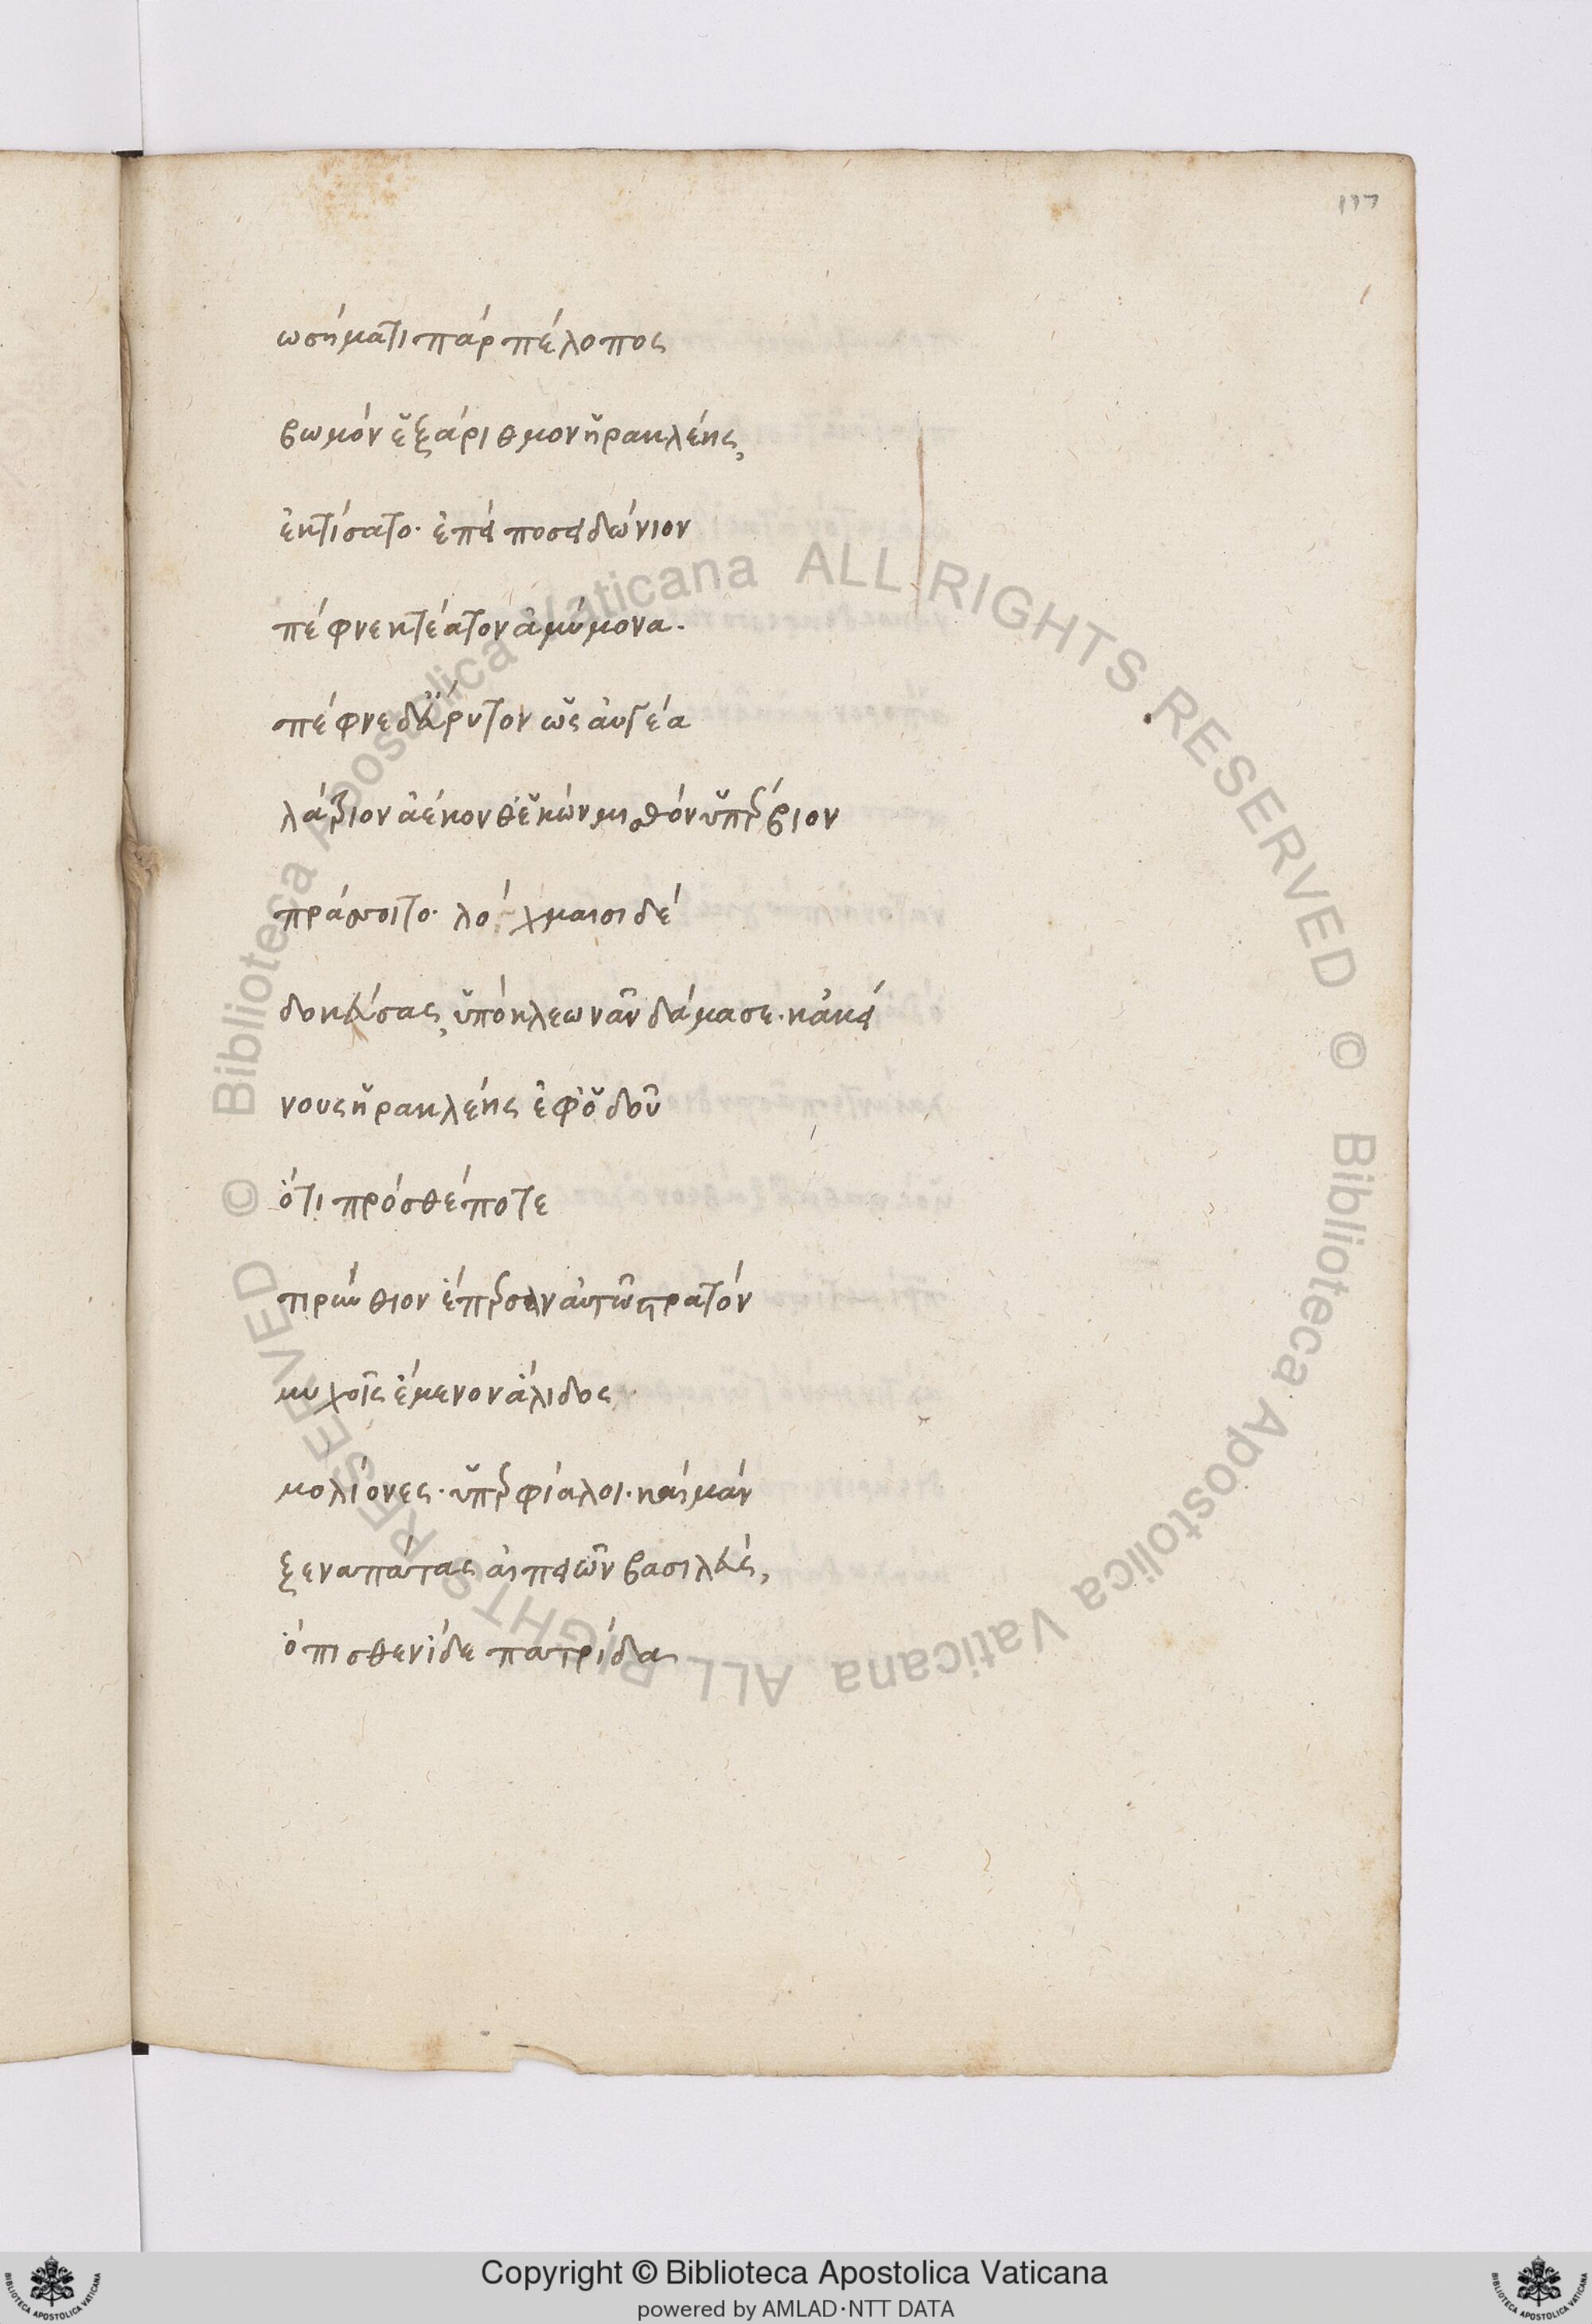 117
ωσήματι πάρ πέλοπος
βωμόν ἐξάριθμον ἡρακλέης,
ἐκτίσατο· ἐπεί ποσειδώνιον
πέφνε κτέατον ἀμύμονα.
πέφνε δ' εὔρυτον ὡς αὐγέα
λάτριον ἀέκονθ' ἑκών μισθόν ὑπέρβιον
πράσσοιτο· λόχμαισι δέ
δοκεύσας, ὑπό κλεωνᾶν δάμασε· κἀκεί
νους ἡρακλέης ἐφ' ὁδοῦ
ὅτι πρόσθέ ποτε
τιρύνθιον ἔπερσαν αὐτῶ στρατόν
μυχοῖς ἔμενον ἄλιδος
μολίονες· ὑπερφίαλοι· καί μάν
ξεναπάτας αἰπειῶν βασιλεύς,
ὄπισθεν ἴδε πατρίδα
© Biblioteca Apostolica Vaticana ALL RIGHTS RESERVED
© Biblioteca Apostolica Vaticana ALL RIGHTS RESERVED
Copyright © Biblioteca Apostolica Vaticana
powered by AMLAD·NTT DATA
BIBLIOTECA APOSTOLICA VATICANA
BIBLIOTECA APOSTOLICA VATICANA